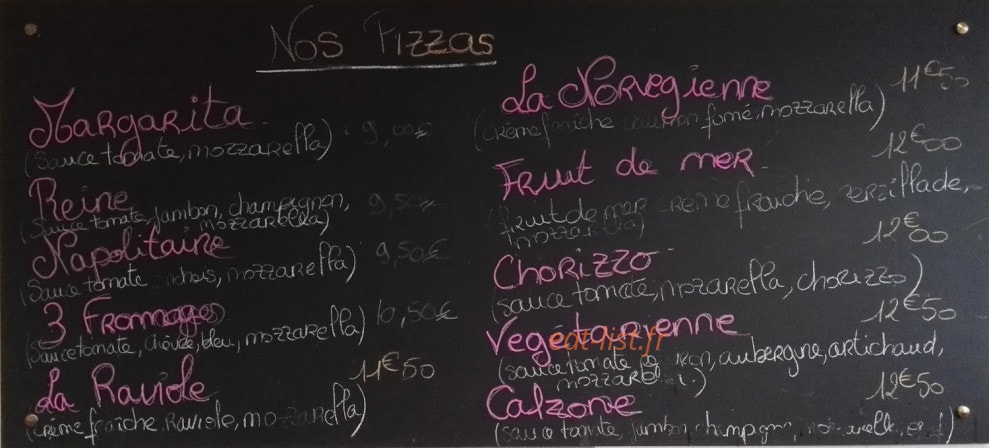 Nos Pizzas
Margarita
(Sauce tomate, mozzarella) 9,00€
Reine
(Sauce tomate, jambon, champignon, 9,50€
mozzarella)
Napolitaine
(Sauce tomate, mozzarella) 9,50€
3 Fromages
(Sauce tomate, chèvre, bleu, mozzarella) 10,50€
La Raviole 11€50
(crème fraîche, Raviole, mozzarella)
La Norvegienne 11€50
(crème fraîche saumon fumé, mozzarella)
Fruit de mer 12€00
(fruit de mer crème fraiche, persillade,
mozzarella)
Chorizzo 12€00
(sauce tomate, mozarella, chorizzo)
Vegétarienne 12€50
eat-list.fr
(sauce tomate, aubergine, artichaud,
Calzone 12€50
(sauce tomate, jambon champignon, mozzarella,